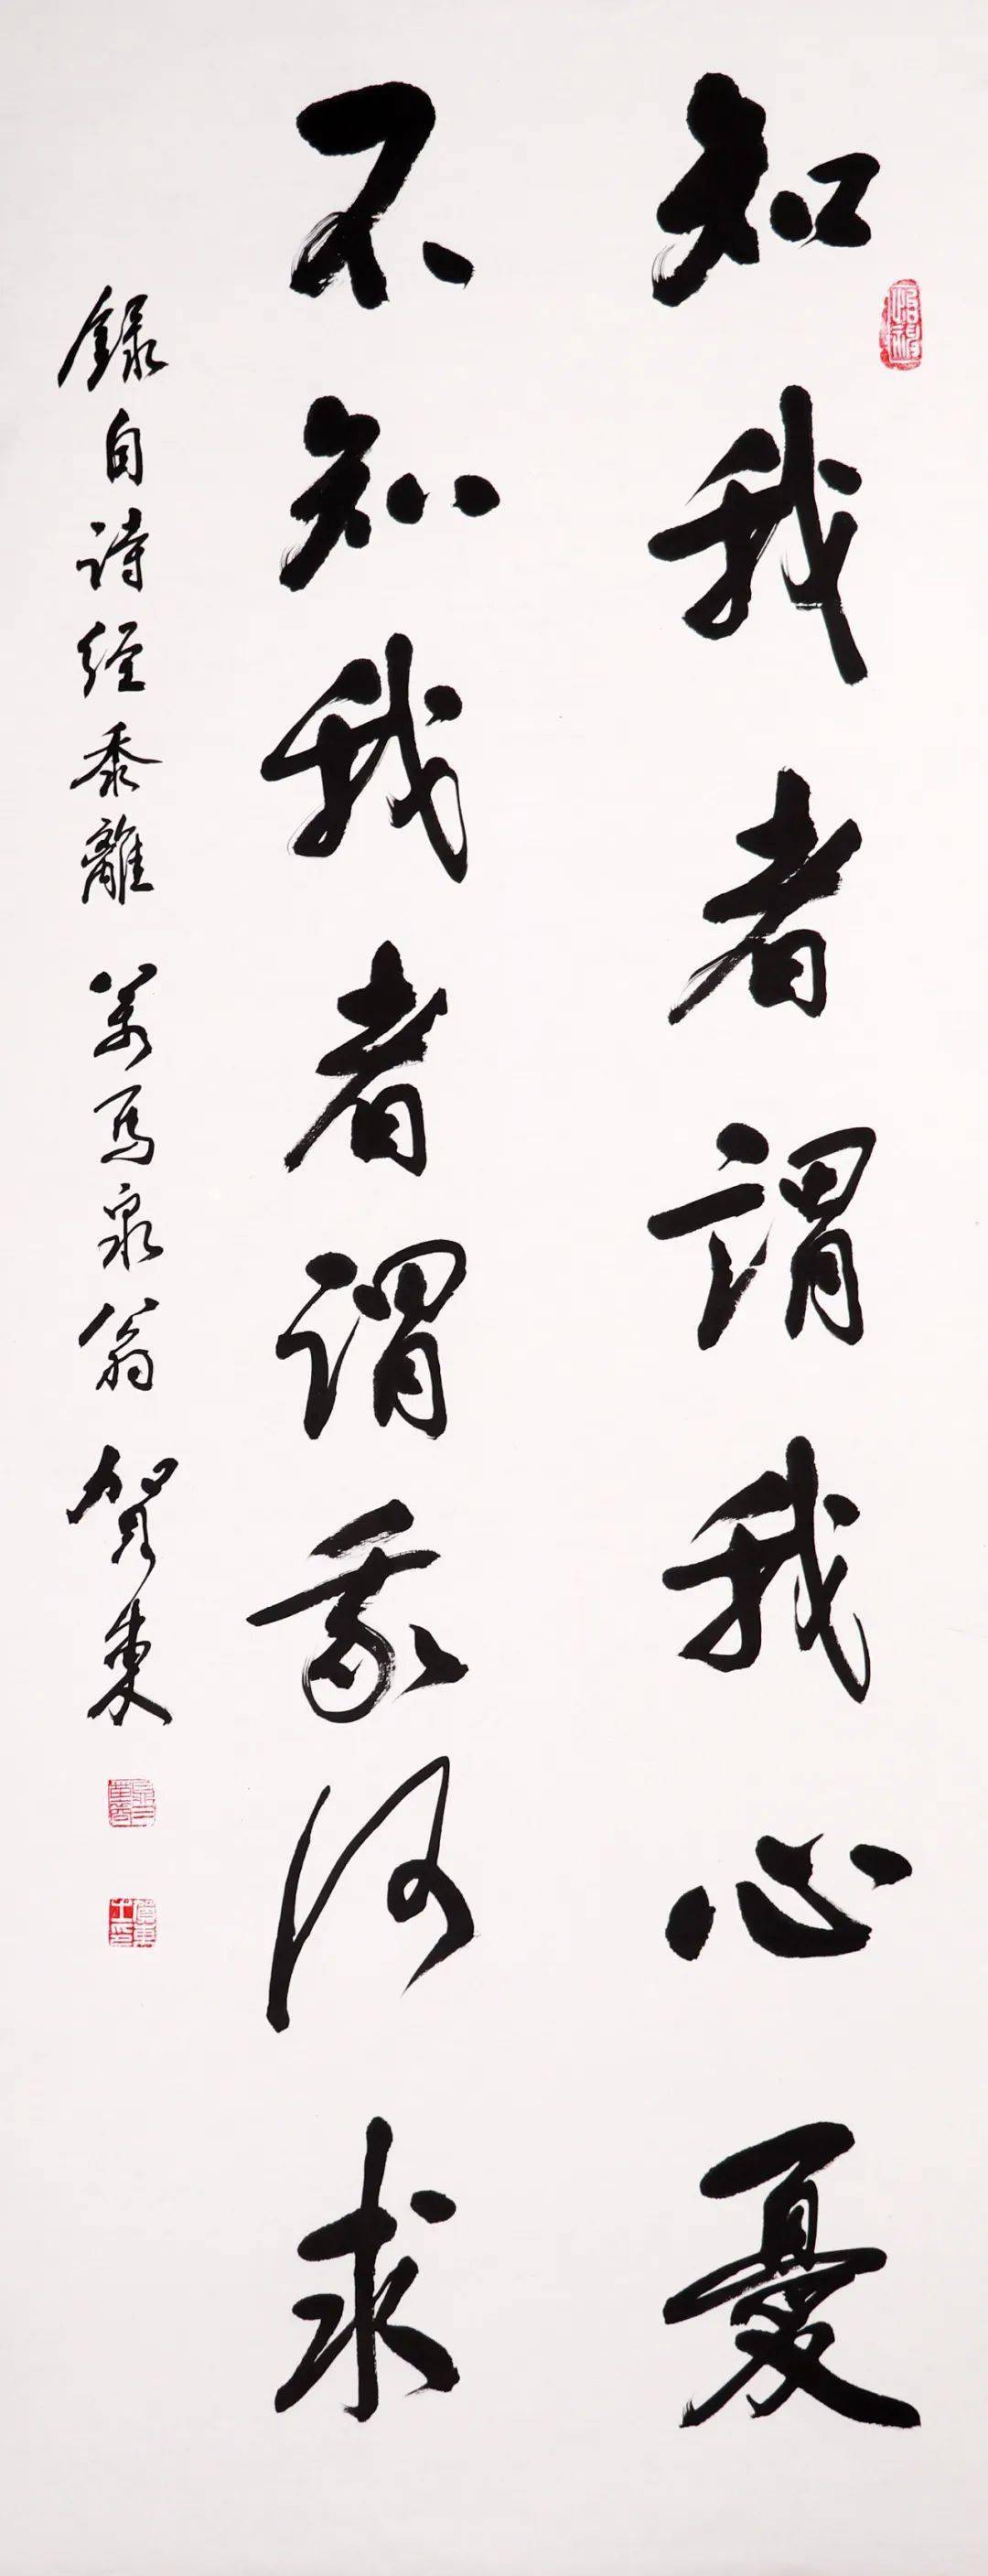 知我者謂我心憂
不知我者謂我何求
錄自詩經黍離 萬馬泉翁 賀東